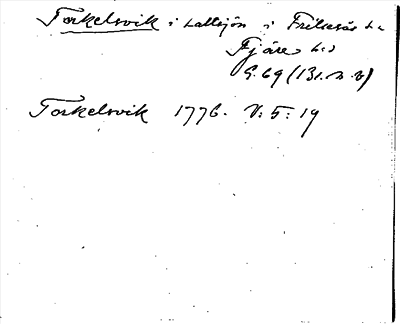 Torkelsvik i Lallsjön i Frillesås s:n
Fjäre h:d
G. 69 (131. n. v)
Torkelsvik 1776. V: 5: 19